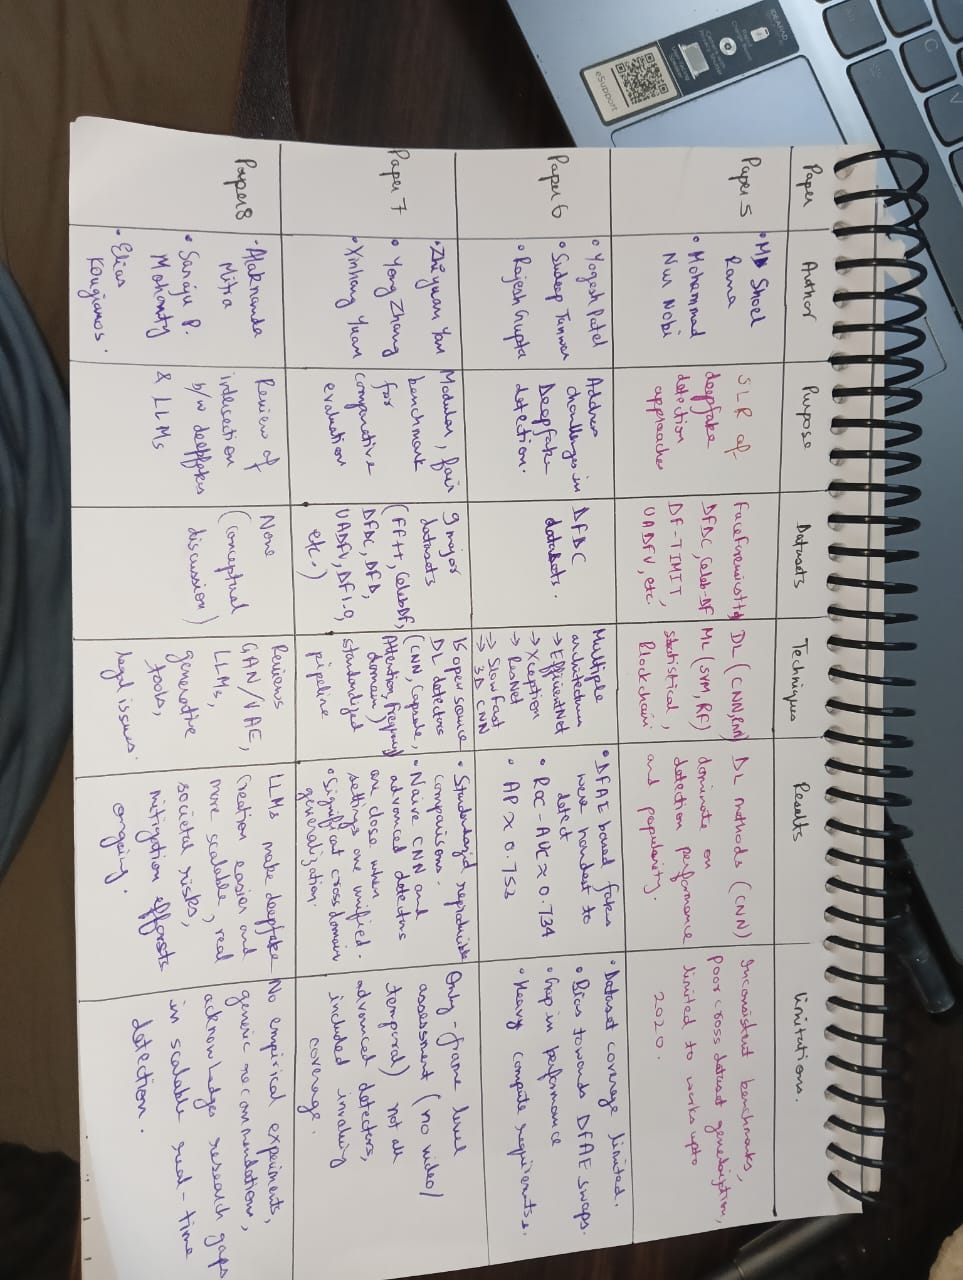 Paper
Author
Purpose
Datasets
Techniques
Results
Limitations.
Paper 5
• MD Shoel
Rana
• Mohammad
Nur Nobi
SLR of
deepfake
detection
approaches
FaceForensics++,
DFDC, Celeb-DF
DF-TIMIT,
UADFV, etc.
DL (CNN, RNN)
ML (SVM, RF)
statistical,
Blockchain.
DL methods (CNN)
dominate on
detection performance
and popularity.
Inconsistent benchmarks,
Poor cross dataset generalization,
limited to works upto
2020.
Paper 6
• Yogesh Patel
• Sudeep Tanwar
• Rajesh Gupta
Address
challenges in
Deepfake
detection.
DFDC
datasets.
Multiple
architectures
→ EfficientNet
→ Xception
→ ResNet
→ SlowFast
→ 3D CNN
• DFAE based fakes
were hardest to
detect
• ROC-AUC ≈ 0.734
• AP ≈ 0.753
• Dataset coverage limited.
• Bias towards DFAE swaps.
• Gap in performance
• Heavy compute requirements.
Paper 7
• Zhiyuan Yan
• Yong Zhang
• Xinhang Yuan
Modular, fair
benchmark
for
comparative
evaluation
9 major
datasets
(FF++, CelebDF,
DFDC, DFD,
UADFV, DF1.0,
etc.)
15 open source
DL detectors
(CNN, Capsule,
Attention, frequency
domain)
standardized
pipeline
• Standardized reproducible
comparisons.
• Naive CNN and
advanced detectors
are close when
settings are unified.
• Significant cross domain
generalization.
Only-frame level
assessment (no video/
temporal) not all
advanced detectors,
included invaling
coverage.
Paper 8
• Alaknanda
Mitra
• Saraju P.
Mohanty
• Elias
Kougianos.
Review of
intersection
b/w deepfakes
& LLMs
None
(conceptual
discussion)
Reviews
GAN/VAE,
LLMs,
generative
tasks,
legal issues.
LLMs make deepfake
creation easier and
more scalable, real
societal risks,
mitigation efforts
ongoing.
No empirical experiments,
generic recommendations,
acknowledges research gaps
in scalable real-time
detection.
eSupport
IDEAPAD